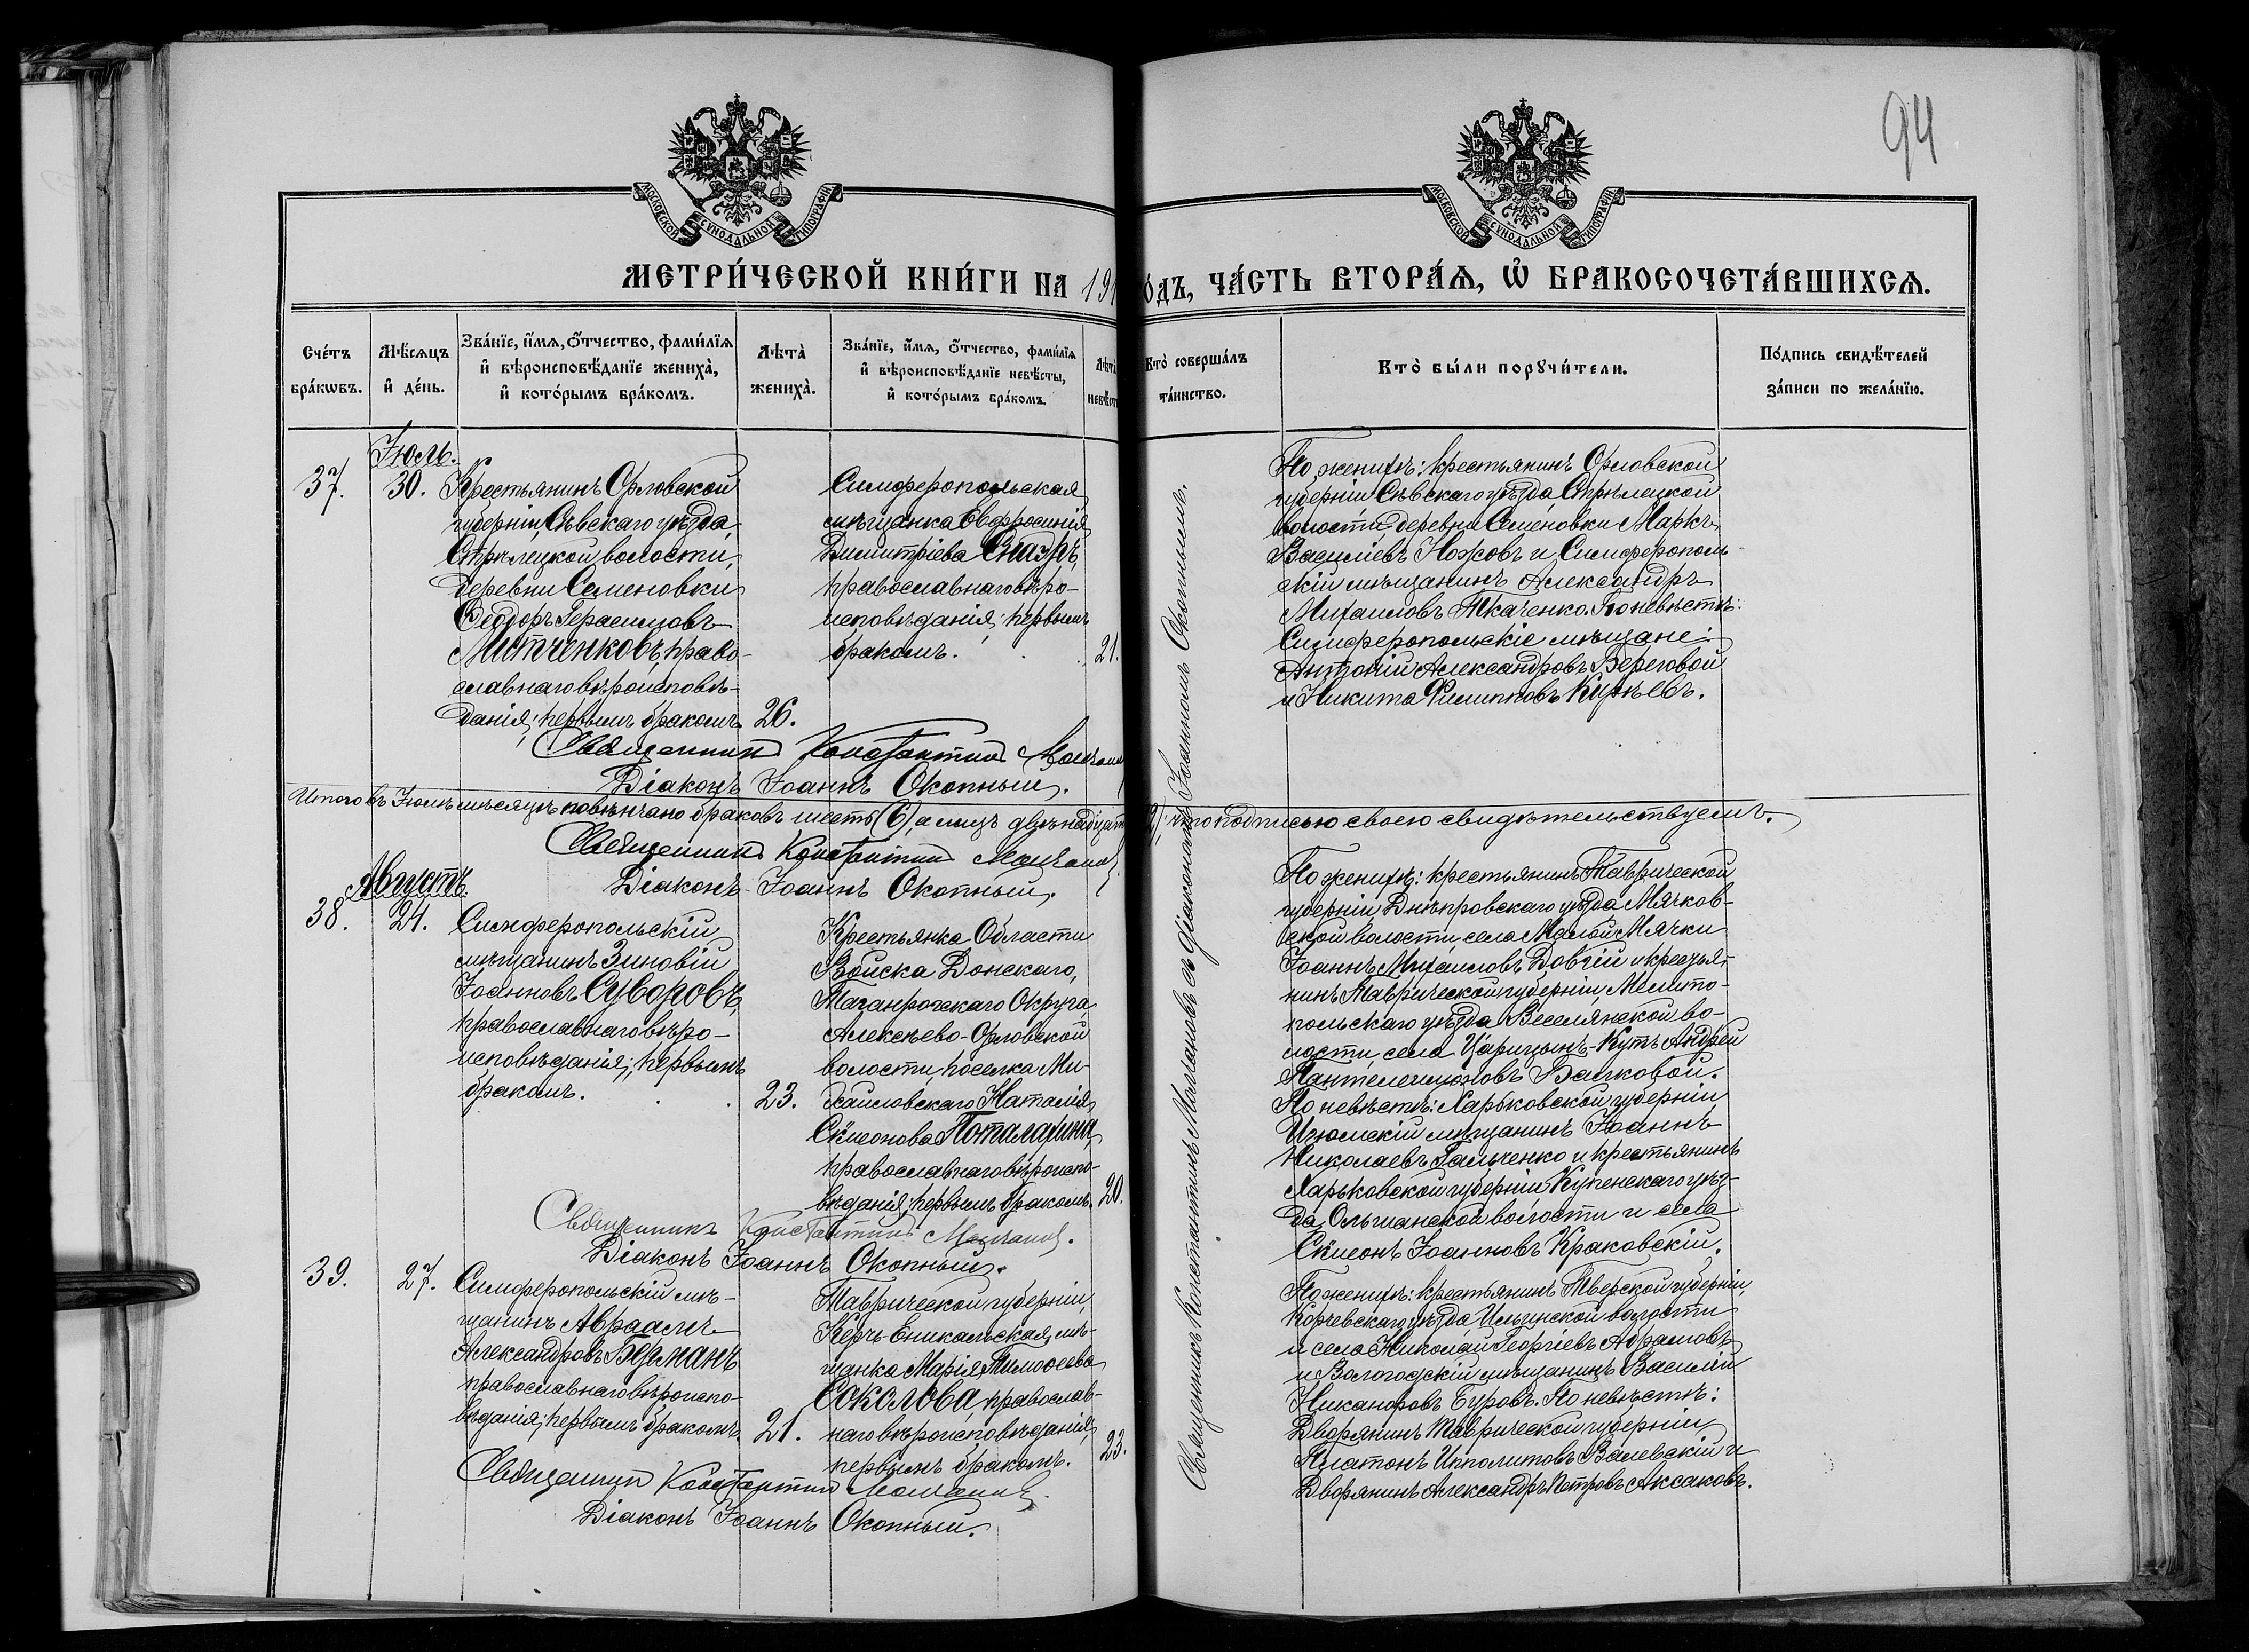 94
МОСКОВСКОЙ СѴНОДАЛЬНОЙ ТИПОГРАФІИ
МОСКОВСКОЙ СѴНОДАЛЬНОЙ ТИПОГРАФІИ
МЕТРИ́ЧЕСКОЙ КНИ́ГИ НА 191
О́ДЪ, ЧА́СТЬ ВТОРА́Ѧ, Ѡ҆ БРАКОСОЧЕТА́ВШИХСѦ.
Сче́тъ бра́кѡвъ.
Мѣ́сѧцъ и҆ де́нь.
Зва́нїе, и҆́мѧ, ѻ҆́тчество, фами́лїѧ и҆ вѣроисповѣ́данїе жениха̀, и҆ кото́рымъ бра́комъ.
Лѣта̀ жениха̀.
Зва́нїе, и҆́мѧ, ѻ҆́тчество, фами́лїѧ и҆ вѣроисповѣ́данїе невѣ́сты, и҆ кото́рымъ бра́комъ.
Лѣта̀ невѣ́ст
Кто̀ соверша́лъ та́инство.
Кто̀ бы́ли порꙋчи́тели.
По́дпись свидѣ́телей за́писи по жела́нїю.
Іюль.
37.
30.
Крестьянинъ Орловской
губерніи, Сѣвскаго уѣзда,
Стрѣлецкой волости,
деревни Семеновки
Ѳеодоръ Герасимовъ
Митченковъ, право-
славнаго вѣроисповѣ-
данія; первымъ бракомъ.
26.
Симферопольская
мѣщанка Евфросинія
Димитріева Сназръ,
православнаго вѣро-
исповѣданія; первымъ
бракомъ.
21.
По женихѣ: крестьянинъ Орловской
губерніи Сѣвскаго уѣзда Стрѣлецкой
волости, деревни Семеновки Маркъ
Василіевъ Ножовъ и Симферополь-
скій мѣщанинъ Александръ
Михаиловъ Ткаченко. По невѣстѣ:
Симферопольскіе мѣщане:
Антоній Александровъ Береговой
и Никита Филипповъ Кирѣевъ.
Священникъ Константинъ Молчанов
Діаконъ Іоаннъ Окопный.
Итого въ Іюлѣ мѣсяцѣ повѣнчано браковъ шесть (6), а лицъ двѣнадцат
2), что подписью своею свидѣтельствуемъ.
Священникъ Константинъ Молчановъ
Діаконъ Іоаннъ Окопный.
Августъ.
38.
24.
Симферопольскій
мѣщанинъ Зиновій
Іоанновъ Суворовъ,
православнаго вѣро-
исповѣданія; первымъ
бракомъ.
23.
Крестьянка Области
Войска Донскаго,
Таганрогскаго Округа,
Алексѣево-Орловской
волости, поселка Ми-
хайловскаго Наталія
Сѵмеонова Поталахина,
православнаго вѣроиспо-
вѣданія; первымъ бракомъ.
20.
По женихѣ: крестьянинъ Таврической
губерніи, Днѣпровскаго уѣзда Мячков-
ской волости, села Малой Мячки
Іоаннъ Михаиловъ Довгій и крестья-
нинъ Таврической губерніи, Мелито-
польскаго уѣзда Веселянской во-
лости, села Царицынъ-Кутъ Андрей
Пантелеимоновъ Байковой.
По невѣстѣ: Харьковской губерніи
Изюмскій мѣщанинъ Іоаннъ
Николаевъ Гальченко и крестьянинъ
Харьковской губерніи Купенскаго уѣз-
да, Ольшанской волости и села
Сѵмеонъ Іоанновъ Краковскій.
Священникъ Константинъ Молчановъ.
Діаконъ Іоаннъ Окопный.
39.
27.
Симферопольскій мѣ-
щанинъ Авраамъ
Александровъ Вейманъ
православнаго вѣроиспо-
вѣданія; первымъ бракомъ.
21.
Таврической губерніи,
Керчь Еникальская мѣ-
щанка Марія Тимоѳеева
Соколова, православ-
наго вѣроисповѣданія;
первымъ бракомъ.
23.
По женихѣ: крестьянинъ Тверской губерніи,
Корчевскаго уѣзда Ильинской волости
и села Николай Георгіевъ Абрамовъ
и Вологодскій мѣщанинъ Василій
Никаноровъ Буровъ. По невѣстѣ:
Дворянинъ Таврической губерніи
Платонъ Ипполитовъ Валевскій и
Дворянинъ Александръ Петровъ Аксаковъ.
Священникъ Константинъ Молчановъ
Діаконъ Іоаннъ Окопный.
Священникъ Константинъ Молчановъ съ діакономъ Іоанномъ Окопнымъ.